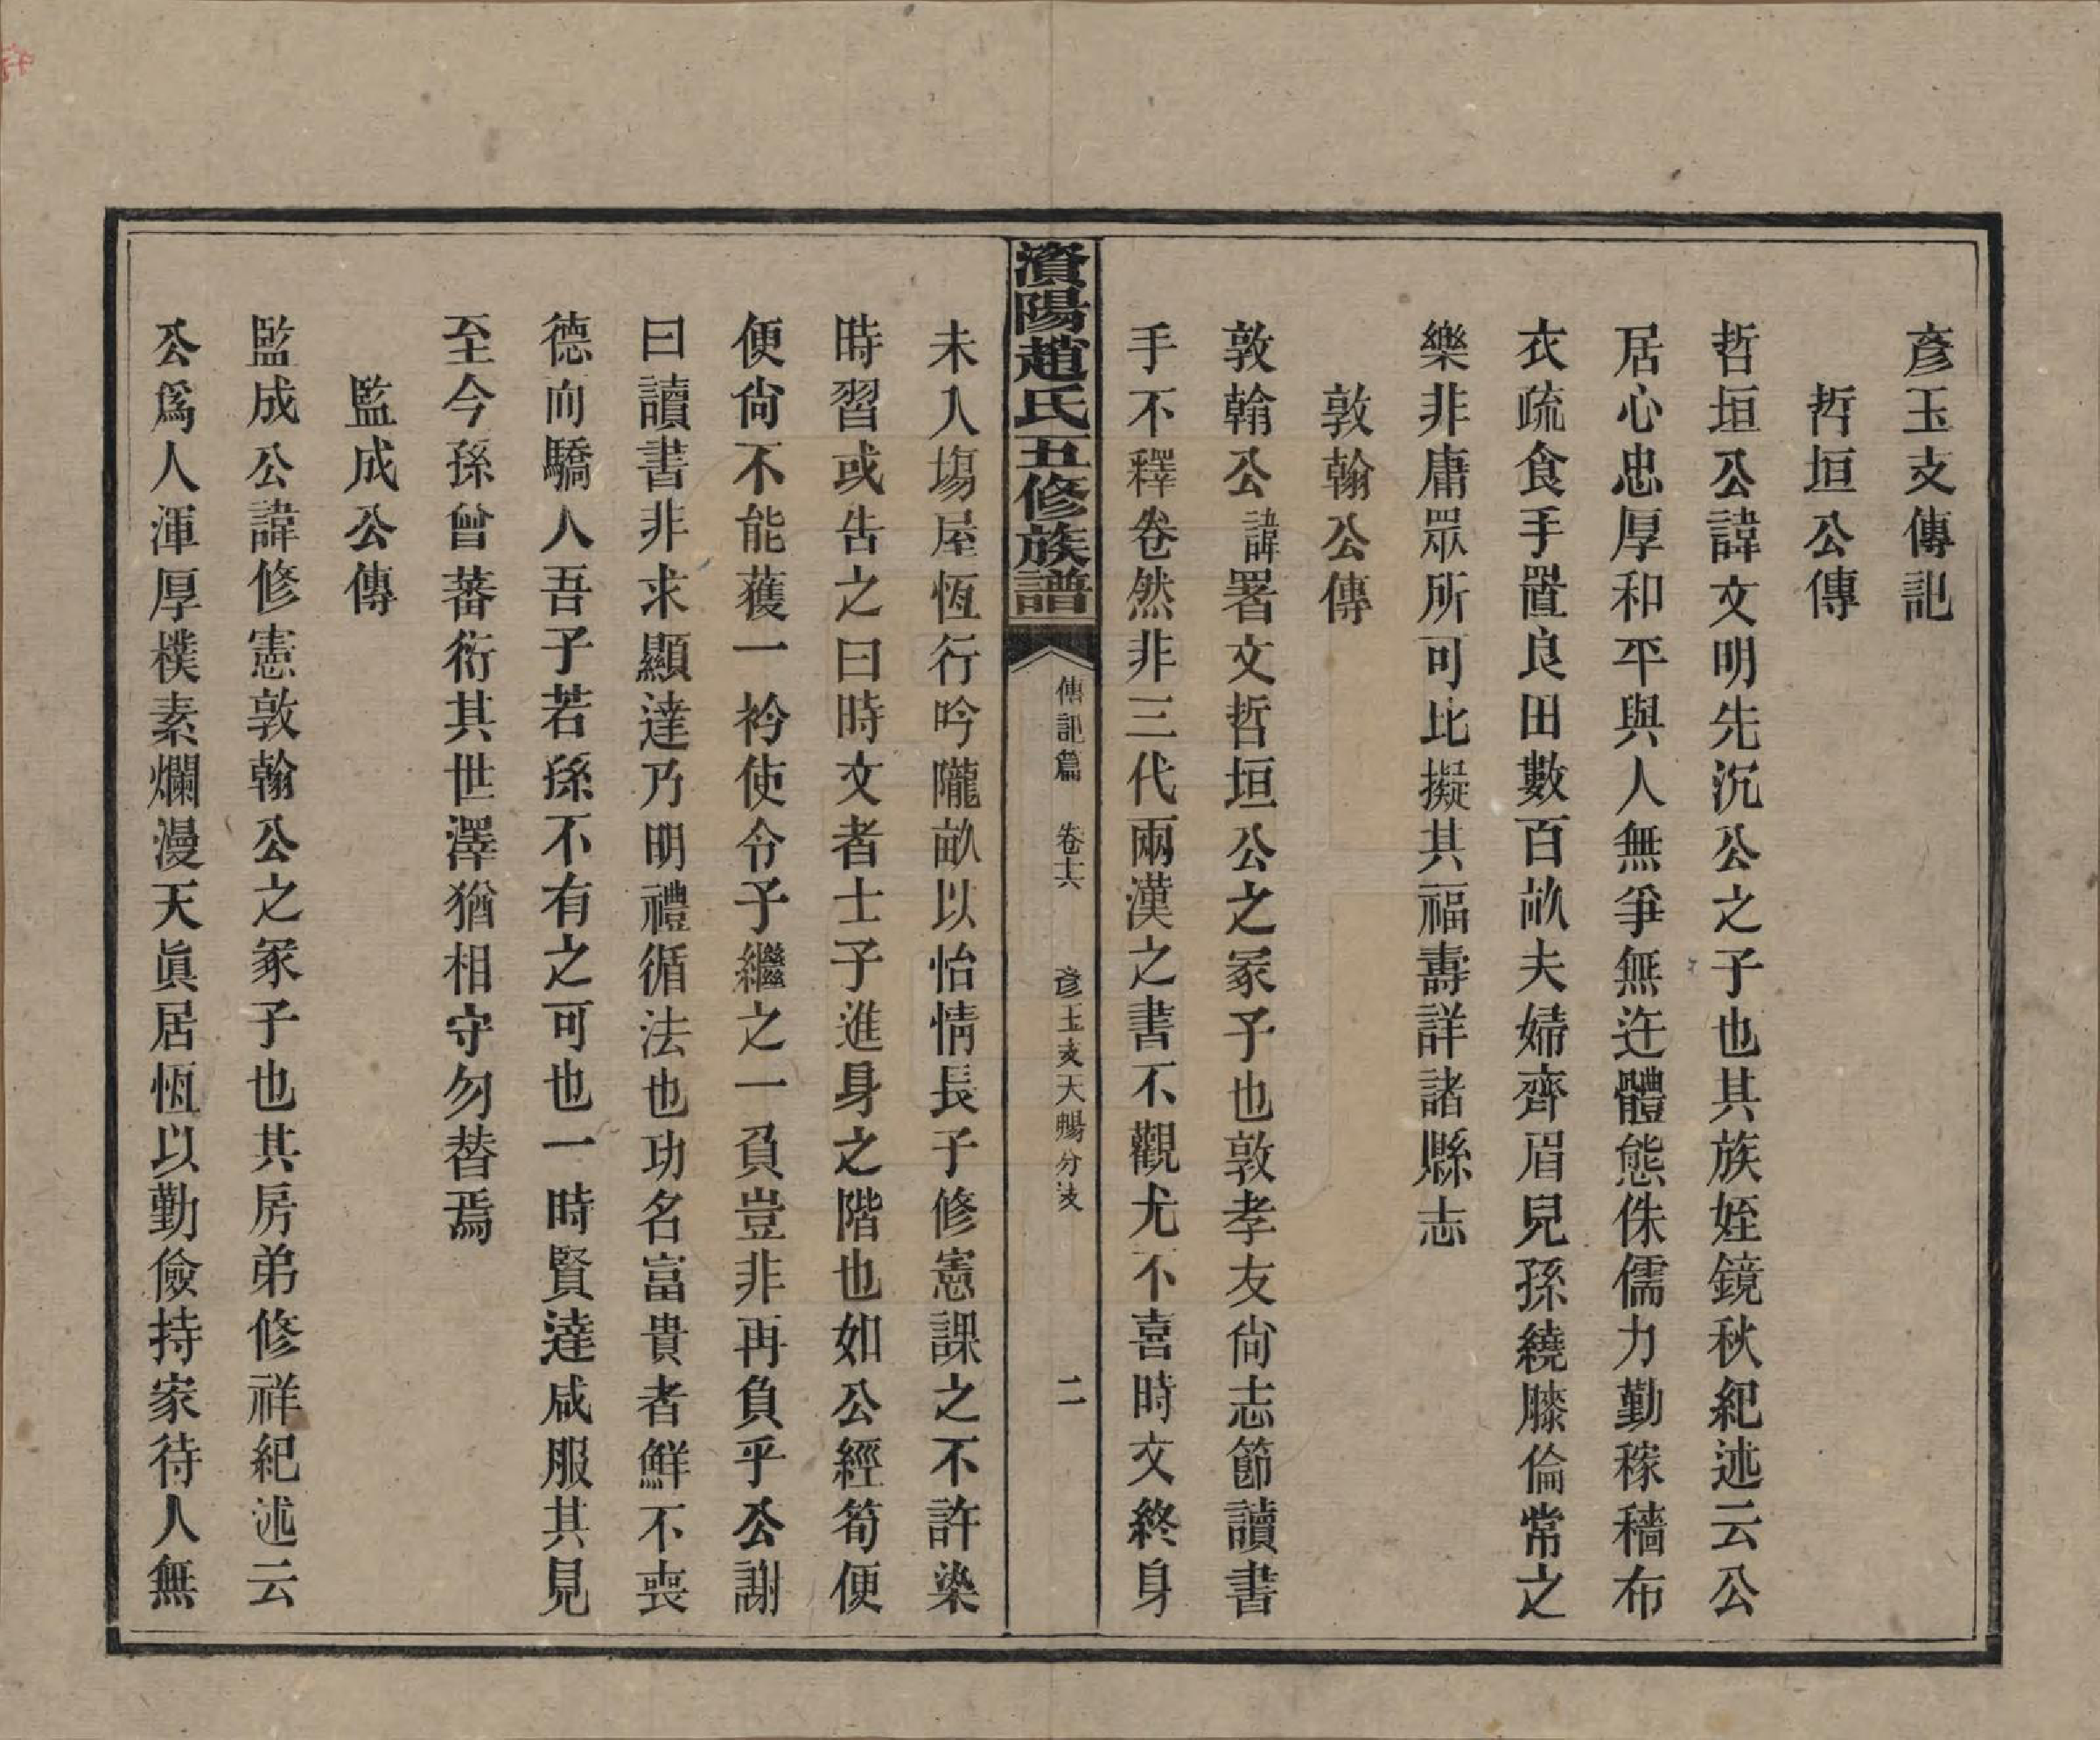 彥玉支傳記
哲垣公傳
哲垣公諱文明先沉公之子也其族姪鏡秋紀述云公
居心忠厚和平與人無爭無迕體態侏儒力勤稼穡布
衣疏食手置良田數百畝夫婦齊眉見孫繞膝倫常之
樂非庸眾所可比擬其福壽詳諸縣志
敦翰公傳
敦翰公諱署文哲垣公之冢子也敦孝友尙志節讀書
手不釋卷然非三代兩漢之書不觀尤不喜時文終身
資陽趙氏五修族譜
傳記篇 卷十六 彥玉支天賜分支 二
未入塲屋恆行吟隴畝以怡情長子修憲課之不許染
時習或告之曰時文者士子進身之階也如公經笥便
便尙不能蒦一衿使令子繼之一負豈非再負乎公謝
曰讀書非求顯達乃明禮循法也功名富貴者鮮不喪
德而驕人吾子若孫不有之可也一時賢達咸服其見
至今孫曾蕃衍其世澤猶相守勿替焉
監成公傳
監成公諱修憲敦翰公之冢子也其房弟修祥紀述云
公爲人渾厚樸素爛漫天眞居恆以勤儉持家待人無